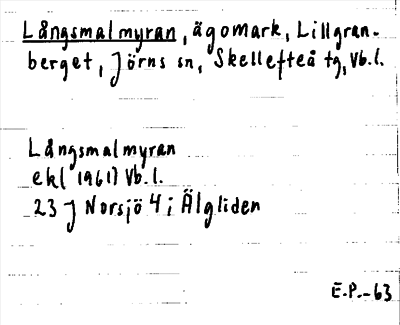 Långsmalmyran, ägomark, Lillgran-
berget, Jörns sn, Skellefteå tg, Vb.l.
Långsmalmyran
ekl (1961) Vb.l.
23 J Norsjö 4 i Älgliden
E.P.-63